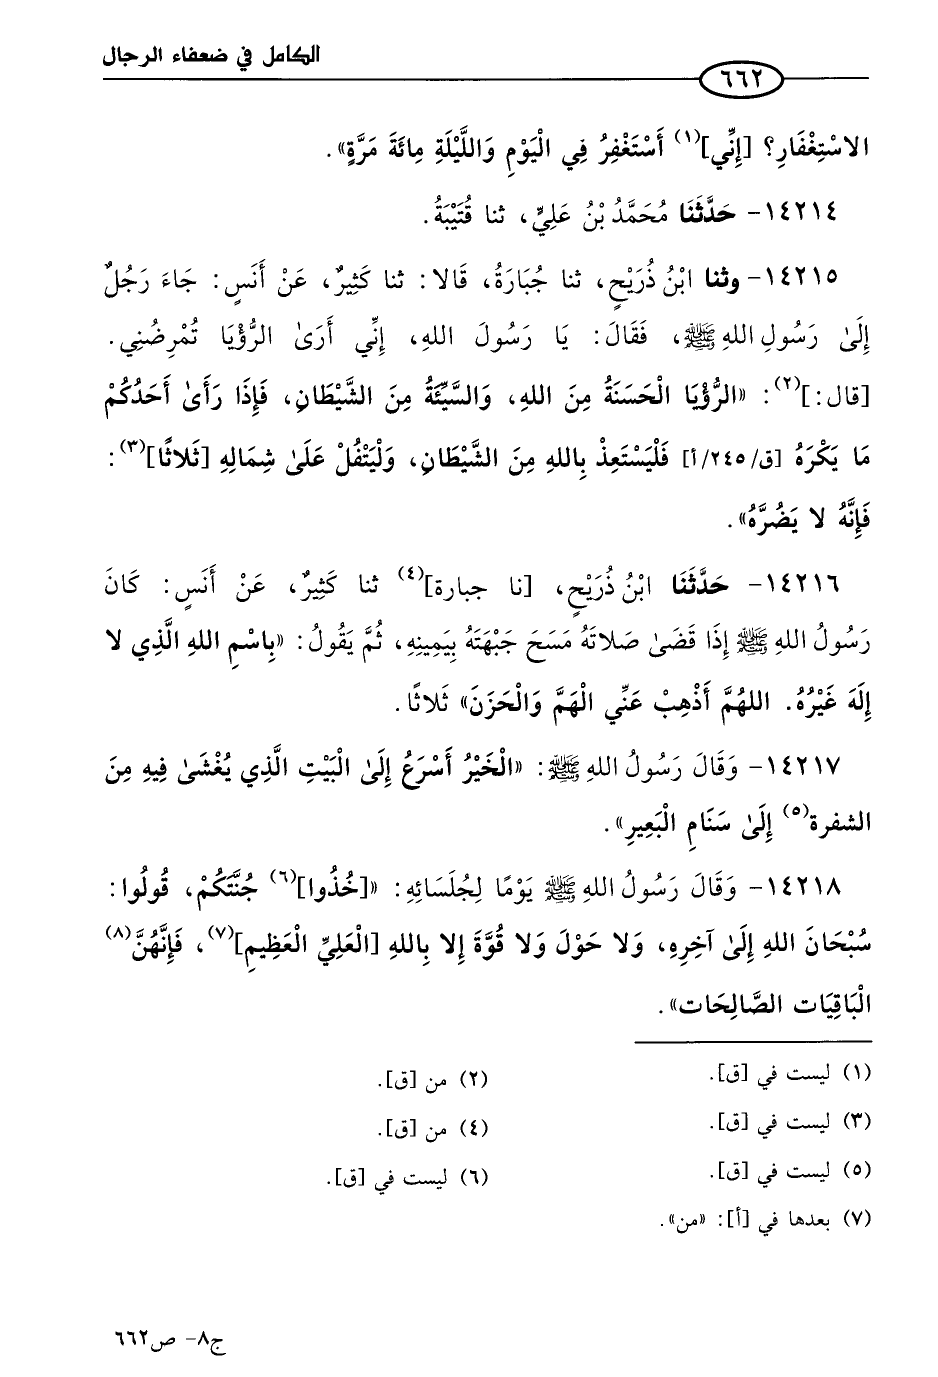 الكامل في ضعفاء الرجال
٦٦٢
الاسْتِغْفَارِ؟ [إِنِّي](١) أَسْتَغْفِرُ فِي الْيَوْمِ وَاللَّيْلَةِ مِائَةَ مَرَّةٍ».
١٤٢١٤- حَدَّثَنَا مُحَمَّدُ بْنُ عَلِيٍّ، ثنا قُتَيْبَةُ.
١٤٢١٥- وثنا ابْنُ ذُرَيْحٍ، ثنا جُبَارَةُ، قَالا: ثنا كَثِيرٌ، عَنْ أَنَسٍ: جَاءَ رَجُلٌ
إِلَىٰ رَسُولِ اللهِ ﷺ، فَقَالَ: يَا رَسُولَ اللهِ، إِنِّي أَرَىٰ الرُّؤْيَا تُمْرِضُنِي.
[قال:](٢): «الرُّؤْيَا الْحَسَنَةُ مِنَ اللهِ، وَالسَّيِّئَةُ مِنَ الشَّيْطَانِ، فَإِذَا رَأَىٰ أَحَدُكُمْ
مَا يَكْرَهُ [ق/٢٤٥/أ] فَلْيَسْتَعِذْ بِاللهِ مِنَ الشَّيْطَانِ، وَلْيَتْفُلْ عَلَىٰ شِمَالِهِ [ثَلاثًا](٣):
فَإِنَّهُ لا يَضُرَّهُ».
١٤٢١٦- حَدَّثَنَا ابْنُ ذُرَيْحٍ، [نا جبارة](٤) ثنا كَثِيرٌ، عَنْ أَنَسٍ: كَانَ
رَسُولُ اللهِ ﷺ إِذَا قَضَىٰ صَلاتَهُ مَسَحَ جَبْهَتَهُ بِيَمِينِهِ، ثُمَّ يَقُولُ: «بِاسْمِ اللهِ الَّذِي لا
إِلَهَ غَيْرُهُ. اللهُمَّ أَذْهِبْ عَنِّي الْهَمَّ وَالْحَزَنَ» ثَلاثًا.
١٤٢١٧- وَقَالَ رَسُولُ اللهِ ﷺ: «الْخَيْرُ أَسْرَعُ إِلَىٰ الْبَيْتِ الَّذِي يُغْشَىٰ فِيهِ مِنَ
الشفرة(٥) إِلَىٰ سَنَامِ الْبَعِيرِ».
١٤٢١٨- وَقَالَ رَسُولُ اللهِ ﷺ يَوْمًا لِجُلَسَائِهِ: «[خُذُوا](٦) جُنَّتَكُمْ، قُولُوا:
سُبْحَانَ اللهِ إِلَىٰ آخِرِهِ، وَلا حَوْلَ وَلا قُوَّةَ إِلا بِاللهِ [الْعَلِيِّ الْعَظِيمِ](٧)، فَإِنَّهُنَّ(٨)
الْبَاقِيَات الصَّالِحَات».
(١) ليست في [ق].
(٢) من [ق].
(٣) ليست في [ق].
(٤) من [ق].
(٥) ليست في [ق].
(٦) ليست في [ق].
(٧) بعدها في [أ]: «من».
ج٨- ص٦٦٢